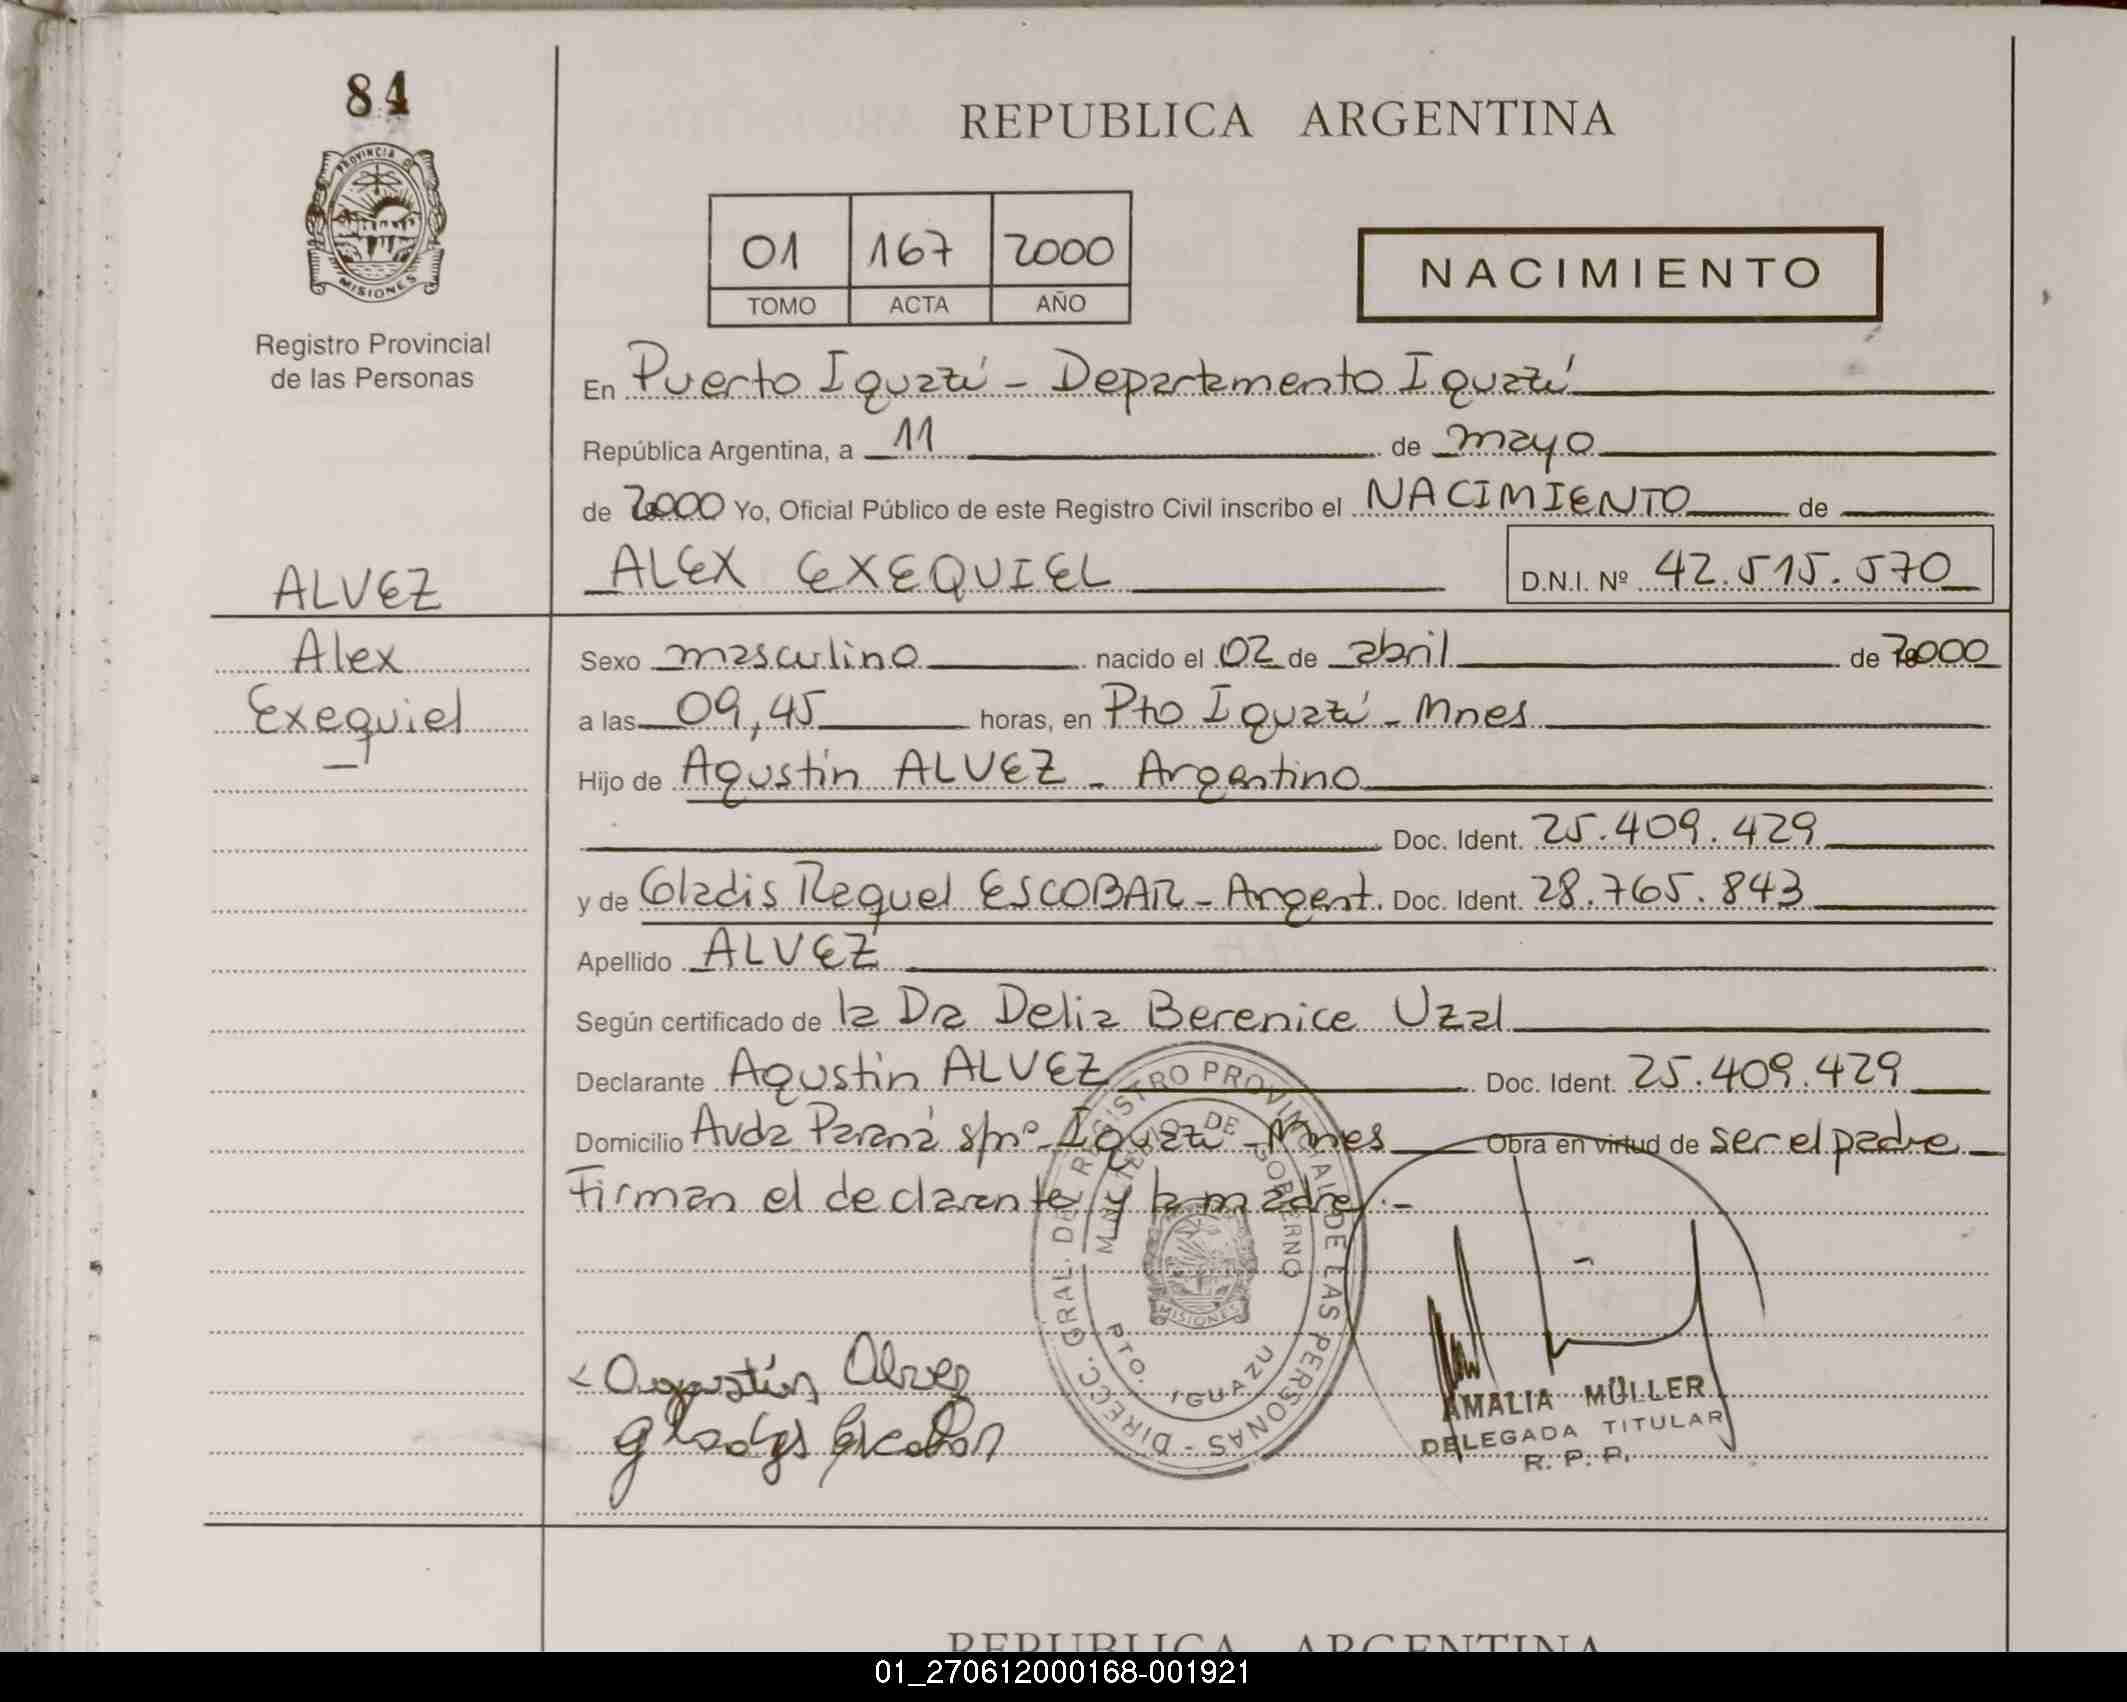 84
PROVINCIA DE
MISIONES
Registro Provincial
de las Personas
REPUBLICA ARGENTINA
01 167 2000
TOMO ACTA AÑO
NACIMIENTO
En Puerto Iguazú - Departamento Iguazú
República Argentina, a 11 de mayo
de 2000 Yo, Oficial Público de este Registro Civil inscribo el NACIMIENTO de
ALVEZ ALEX EXEQUIEL D.N.I. Nº 42.515.570
Alex Sexo masculino nacido el 02 de abril de 2000
Exequiel a las 09,45 horas, en Pto Iguazú - Mnes
Hijo de Agustin ALVEZ - Argentino
Doc. Ident. 25.409.429
y de Gladis Raquel ESCOBAR - Argent. Doc. Ident. 28.765.843
Apellido ALVEZ
Según certificado de la Dra Delia Berenice Uzal
Declarante Agustin ALVEZ Doc. Ident. 25.409.429
Domicilio Avda Paraná s/nº - Iguazú - Mnes Obra en virtud de ser el padre
Firman el declarante y la madre.-
DIRECC. GRAL. DEL REGISTRO PROVINCIAL DE LAS PERSONAS -
MINISTERIO DE GOBIERNO
MISIONES
PTO. IGUAZU
Agustín Alvez
Gladys Escobar
AMALIA MÜLLER
DELEGADA TITULAR
R. P. P.
REPUBLICA ARGENTINA
01_270612000168-001921